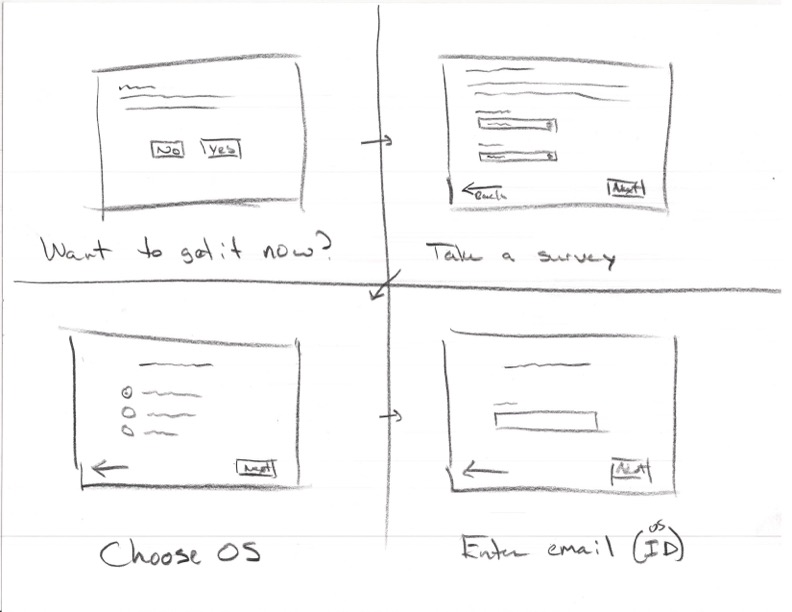 No Yes
Want to get it now?
Back Next
Take a survey
Next
Choose OS
Next
OS
Enter email (ID)